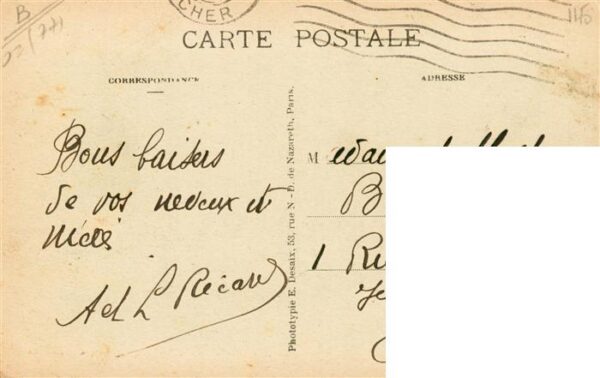 B
CHER
CARTE POSTALE
CORRESPONDANCE
ADRESSE
Bons baisers
de vos neveux et
nièces
Ad L Récard
Phototypie E. Desaix, 53, rue N.-D. de Nazareth, Paris.
M
B
1 Ru